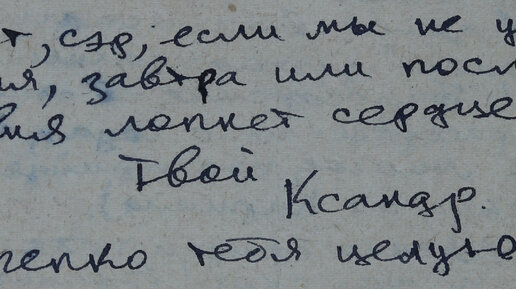 т, сэр, если мы не у
ия, завтра или посл
вия лопнет сердце
Твой
Ксандр.
репко тебя целую